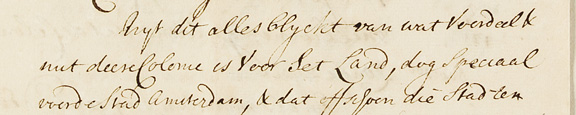 Uijt dit alles blyckt van wat Voordeel &
nut deere Colonie is Voor het Land, dog speciaal
voor de Stad Amsterdam, & dat offschoon die Stad een